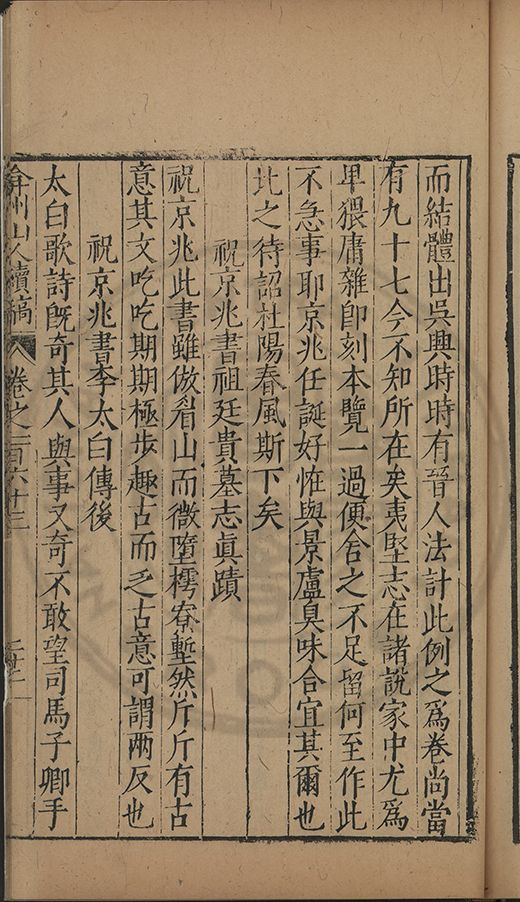 而結體出吳興時時有晉人法計此例之爲卷尚當
有九十七今不知所在矣夷堅志在諸說家中尤爲
卑猥庸雜卽刻本覽一過便舍之不足留何至作此
不急事耶京兆任誕好怪與景盧臭味合宜其爾也
比之待詔杜陽春風斯下矣
祝京兆書祖廷貴墓志眞蹟
祝京兆此書雖倣眉山而微墮樗寮塹然斤斤有古
意其文吃吃期期極步趣古而乏古意可謂兩反也
祝京兆書李太白傳後
太白歌詩旣奇其人與事又奇不敢望司馬子卿手
弇州山人續稿 卷之一百六十三